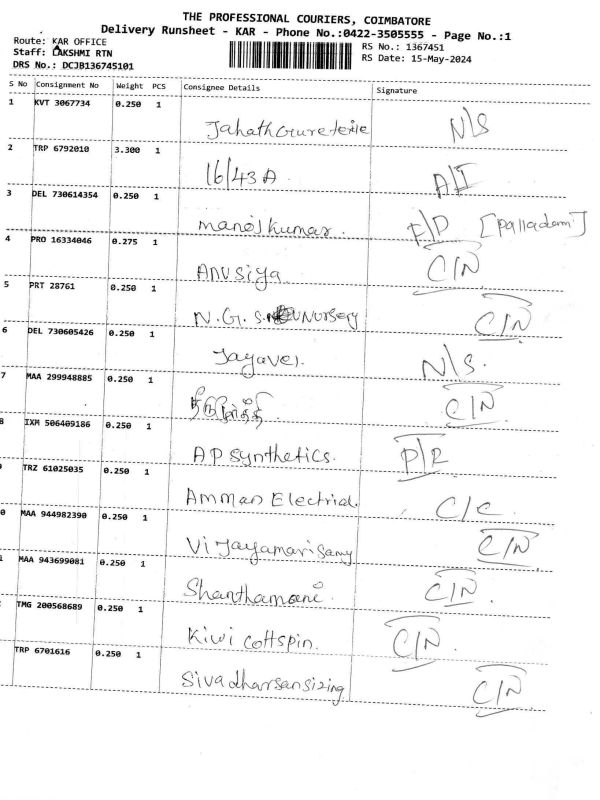 THE PROFESSIONAL COURIERS, COIMBATORE
Delivery Runsheet - KAR - Phone No.:0422-3505555 - Page No.:1
Route: KAR OFFICE RS No.: 1367451
Staff: LAKSHMI RTN RS Date: 15-May-2024
DRS No.: DCJB136745101
S No Consignment No Weight PCS Consignee Details Signature
1 KVT 3067734 0.250 1
N/S
2 TRP 6792010 3.300 1
16/43A A/I
3 DEL 730614354 0.250 1
manojkumar. F/D [Palladam]
4 PRO 16334046 0.275 1
Anusiya C/N
5 PRT 28761 0.250 1
N.G.S. Nursery C/N
6 DEL 730605426 0.250 1
Jayavel. N/S.
7 MAA 299948885 0.250 1
C/N
8 IXM 506409186 0.250 1
AP Synthetics. P/R
9 TRZ 61025035 0.250 1
Amman Electrical. C/C
0 MAA 944982390 0.250 1
Vijayamarisamy C/N
1 MAA 943699081 0.250 1
Shanthamani. C/N
TMG 200568689 0.250 1
Kiwi cottspin. C/N
TRP 6701616 0.250 1
Sivadharsansizing C/N